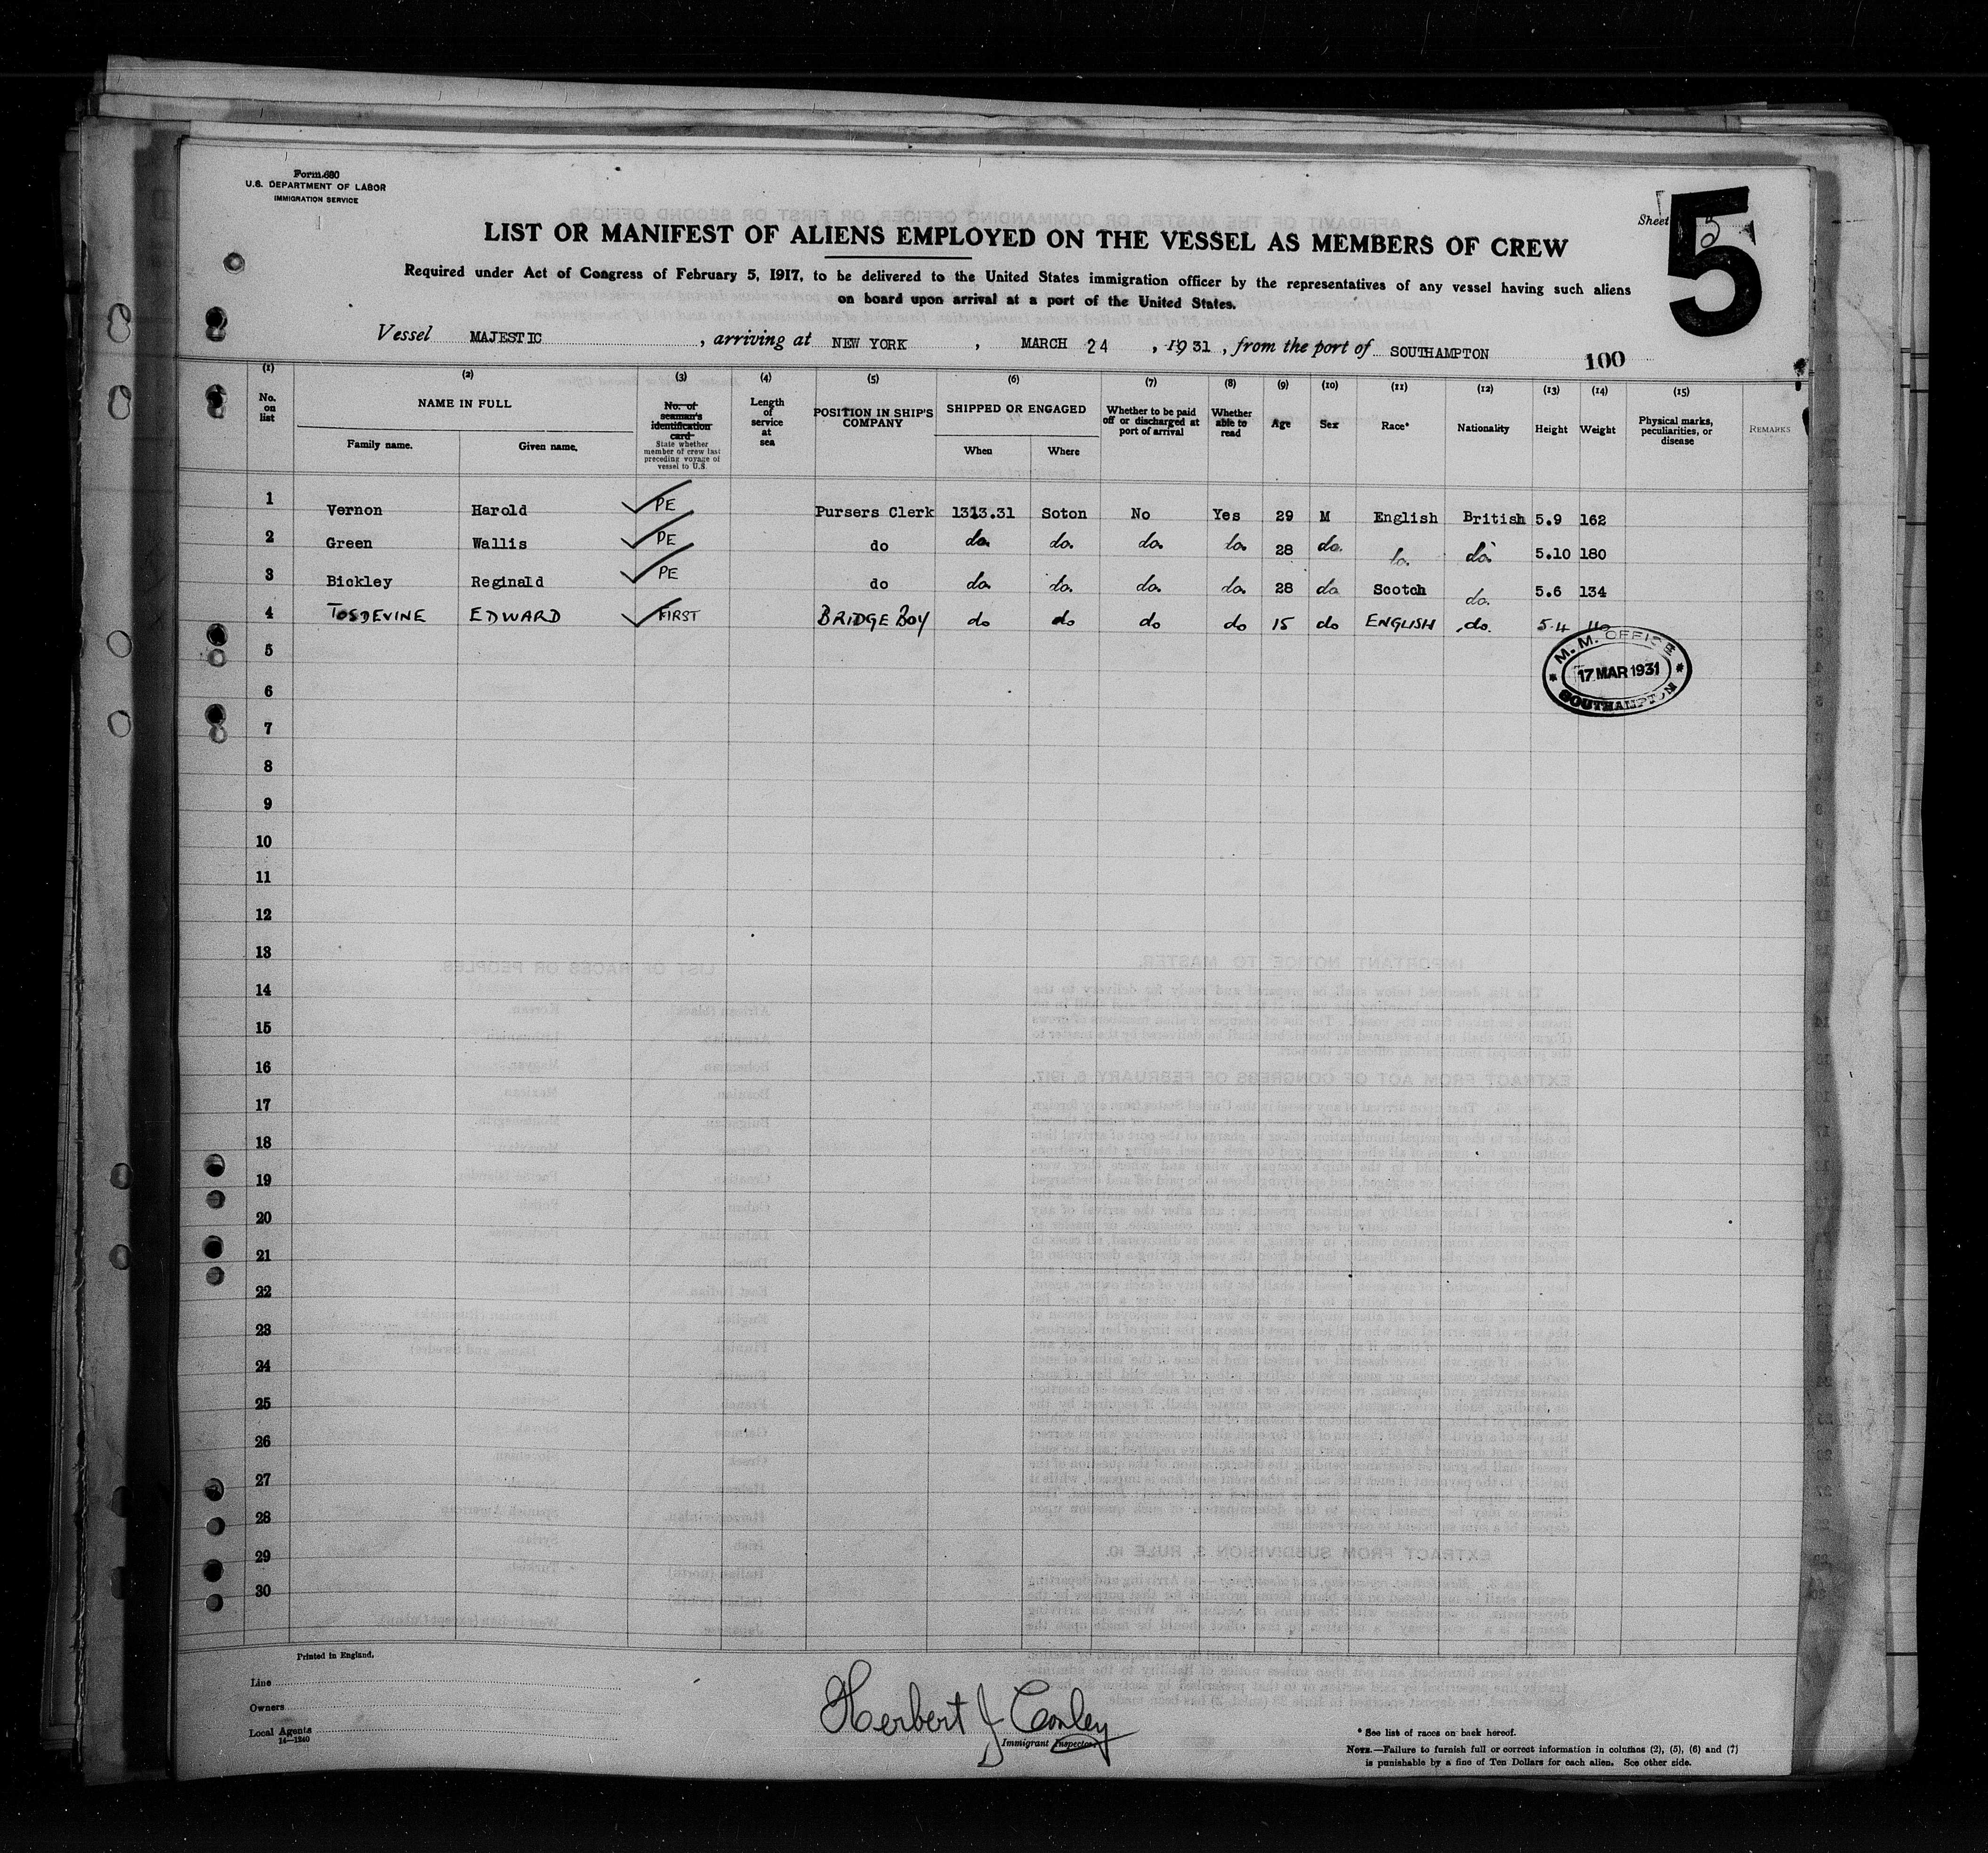 Form 680
U.S. DEPARTMENT OF LABOR
IMMIGRATION SERVICE
Sheet
5
LIST OR MANIFEST OF ALIENS EMPLOYED ON THE VESSEL AS MEMBERS OF CREW
Required under Act of Congress of February 5, 1917, to be delivered to the United States immigration officer by the representatives of any vessel having such aliens
on board upon arrival at a port of the United States.
Vessel MAJESTIC, arriving at NEW YORK, MARCH 24, 1931, from the port of SOUTHAMPTON
100
(1) (2) (3) (4) (5) (6) (7) (8) (9) (10) (11) (12) (13) (14) (15)
No. on list
NAME IN FULL
Family name. Given name.
No. of seaman's identification card
State whether member of crew last preceding voyage of vessel to U.S.
Length of service at sea
POSITION IN SHIP'S COMPANY
SHIPPED OR ENGAGED
When Where
Whether to be paid off or discharged at port of arrival
Whether able to read
Age
Sex
Race*
Nationality
Height
Weight
Physical marks, peculiarities, or disease
REMARKS
1 Vernon Harold PE Pursers Clerk 1313.31 Soton No Yes 29 M English British 5.9 162
2 Green Wallis PE do do. do. do. do. 28 do. do. do. 5.10 180
3 Bickley Reginald PE do do. do. do. do. 28 do Scotch do. 5.6 134
4 TOSDEVINE EDWARD FIRST BRIDGE BOY do do do do 15 do ENGLISH do. 5.4 110
M. M. OFFICE
17 MAR 1931
SOUTHAMPTON
5
6
7
8
9
10
11
12
13
14
15
16
17
18
19
20
21
22
23
24
25
26
27
28
29
30
Printed in England.
Line
Owners
Local Agents
14—1240
Herbert J Conley
Immigrant Inspector.
* See list of races on back hereof.
NOTE.—Failure to furnish full or correct information in columns (2), (5), (6) and (7)
is punishable by a fine of Ten Dollars for each alien. See other side.